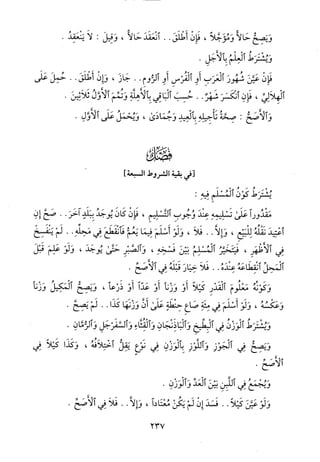 وَيَصِحُّ حَالّاً وَمُؤَجَّلاً ، فَإِنْ أَطْلَقَ .. انْعَقَدَ حَالّاً ، وَقِيلَ : لاَ يَنْعَقِدُ .
وَيُشْتَرَطُ الْعِلْمُ بِالأَجَلِ .
فَإِنْ عَيَّنَ شُهُورَ الْعَرَبِ أَوِ الْفُرْسِ أَوِ الرُّومِ .. جَازَ ، وَإِنْ أَطْلَقَ .. حُمِلَ عَلَى
الْهِلاَلِيِّ ، فَإِنِ انْكَسَرَ شَهْرٌ .. حُسِبَ الْبَاقِي بِالأَهِلَّةِ وَتُمِّمَ الأَوَّلُ ثَلاَثِينَ .
وَالأَصَحُّ : صِحَّةُ تَأْجِيلِهِ بِالْعِيدِ وَجُمَادَى ، وَيُحْمَلُ عَلَى الأَوَّلِ .
فَصْلٌ
[في بقية الشروط السبعة]
يُشْتَرَطُ كَوْنُ الْمُسْلَمِ فِيهِ :
مَقْدُوراً عَلَى تَسْلِيمِهِ عِنْدَ وُجُوبِ التَّسْلِيمِ ، فَإِنْ كَانَ يُوجَدُ بِبَلَدٍ آخَرَ .. صَحَّ إِنِ
اعْتِيدَ نَقْلُهُ لِلْبَيْعِ ، وَإِلاَّ .. فَلاَ ، وَلَوْ أَسْلَمَ فِيمَا يَعُمُّ فَانْقَطَعَ فِي مَحِلِّهِ .. لَمْ يَنْفَسِخْ
فِي الأَظْهَرِ ، فَيَتَخَيَّرُ الْمُسْلِمُ بَيْنَ فَسْخِهِ ، وَالصَّبْرِ حَتَّى يُوجَدَ ، وَلَوْ عَلِمَ قَبْلَ
الْمَحِلِّ انْقِطَاعَهُ عِنْدَهُ .. فَلاَ خِيَارَ قَبْلَهُ فِي الأَصَحِّ .
وَكَوْنُهُ مَعْلُومَ الْقَدْرِ كَيْلاً أَوْ وَزْناً أَوْ عَدّاً أَوْ ذَرْعاً ، وَيَصِحُّ الْمَكِيلُ وَزْناً
وَعَكْسُهُ ، وَلَوْ أَسْلَمَ فِي مِئَةِ صَاعِ حِنْطَةٍ عَلَى أَنَّ وَزْنَهَا كَذَا .. لَمْ يَصِحَّ .
وَيُشْتَرَطُ الْوَزْنُ فِي الْبِطِّيخِ وَالْبَاذِنْجَانِ وَالْقِثَّاءِ وَالسَّفَرْجَلِ وَالرُّمَّانِ .
وَيَصِحُّ فِي الْجَوْزِ وَاللَّوْزِ بِالْوَزْنِ فِي نَوْعٍ يَقِلُّ اخْتِلاَفُهُ ، وَكَذَا كَيْلاً فِي
الأَصَحِّ .
وَيُجْمَعُ فِي اللَّبِنِ بَيْنَ الْعَدِّ وَالْوَزْنِ .
وَلَوْ عَيَّنَ كَيْلاً .. فَسَدَ إِنْ لَمْ يَكُنْ مُعْتَاداً ، وَإِلاَّ .. فَلاَ فِي الأَصَحِّ .
٢٣٧